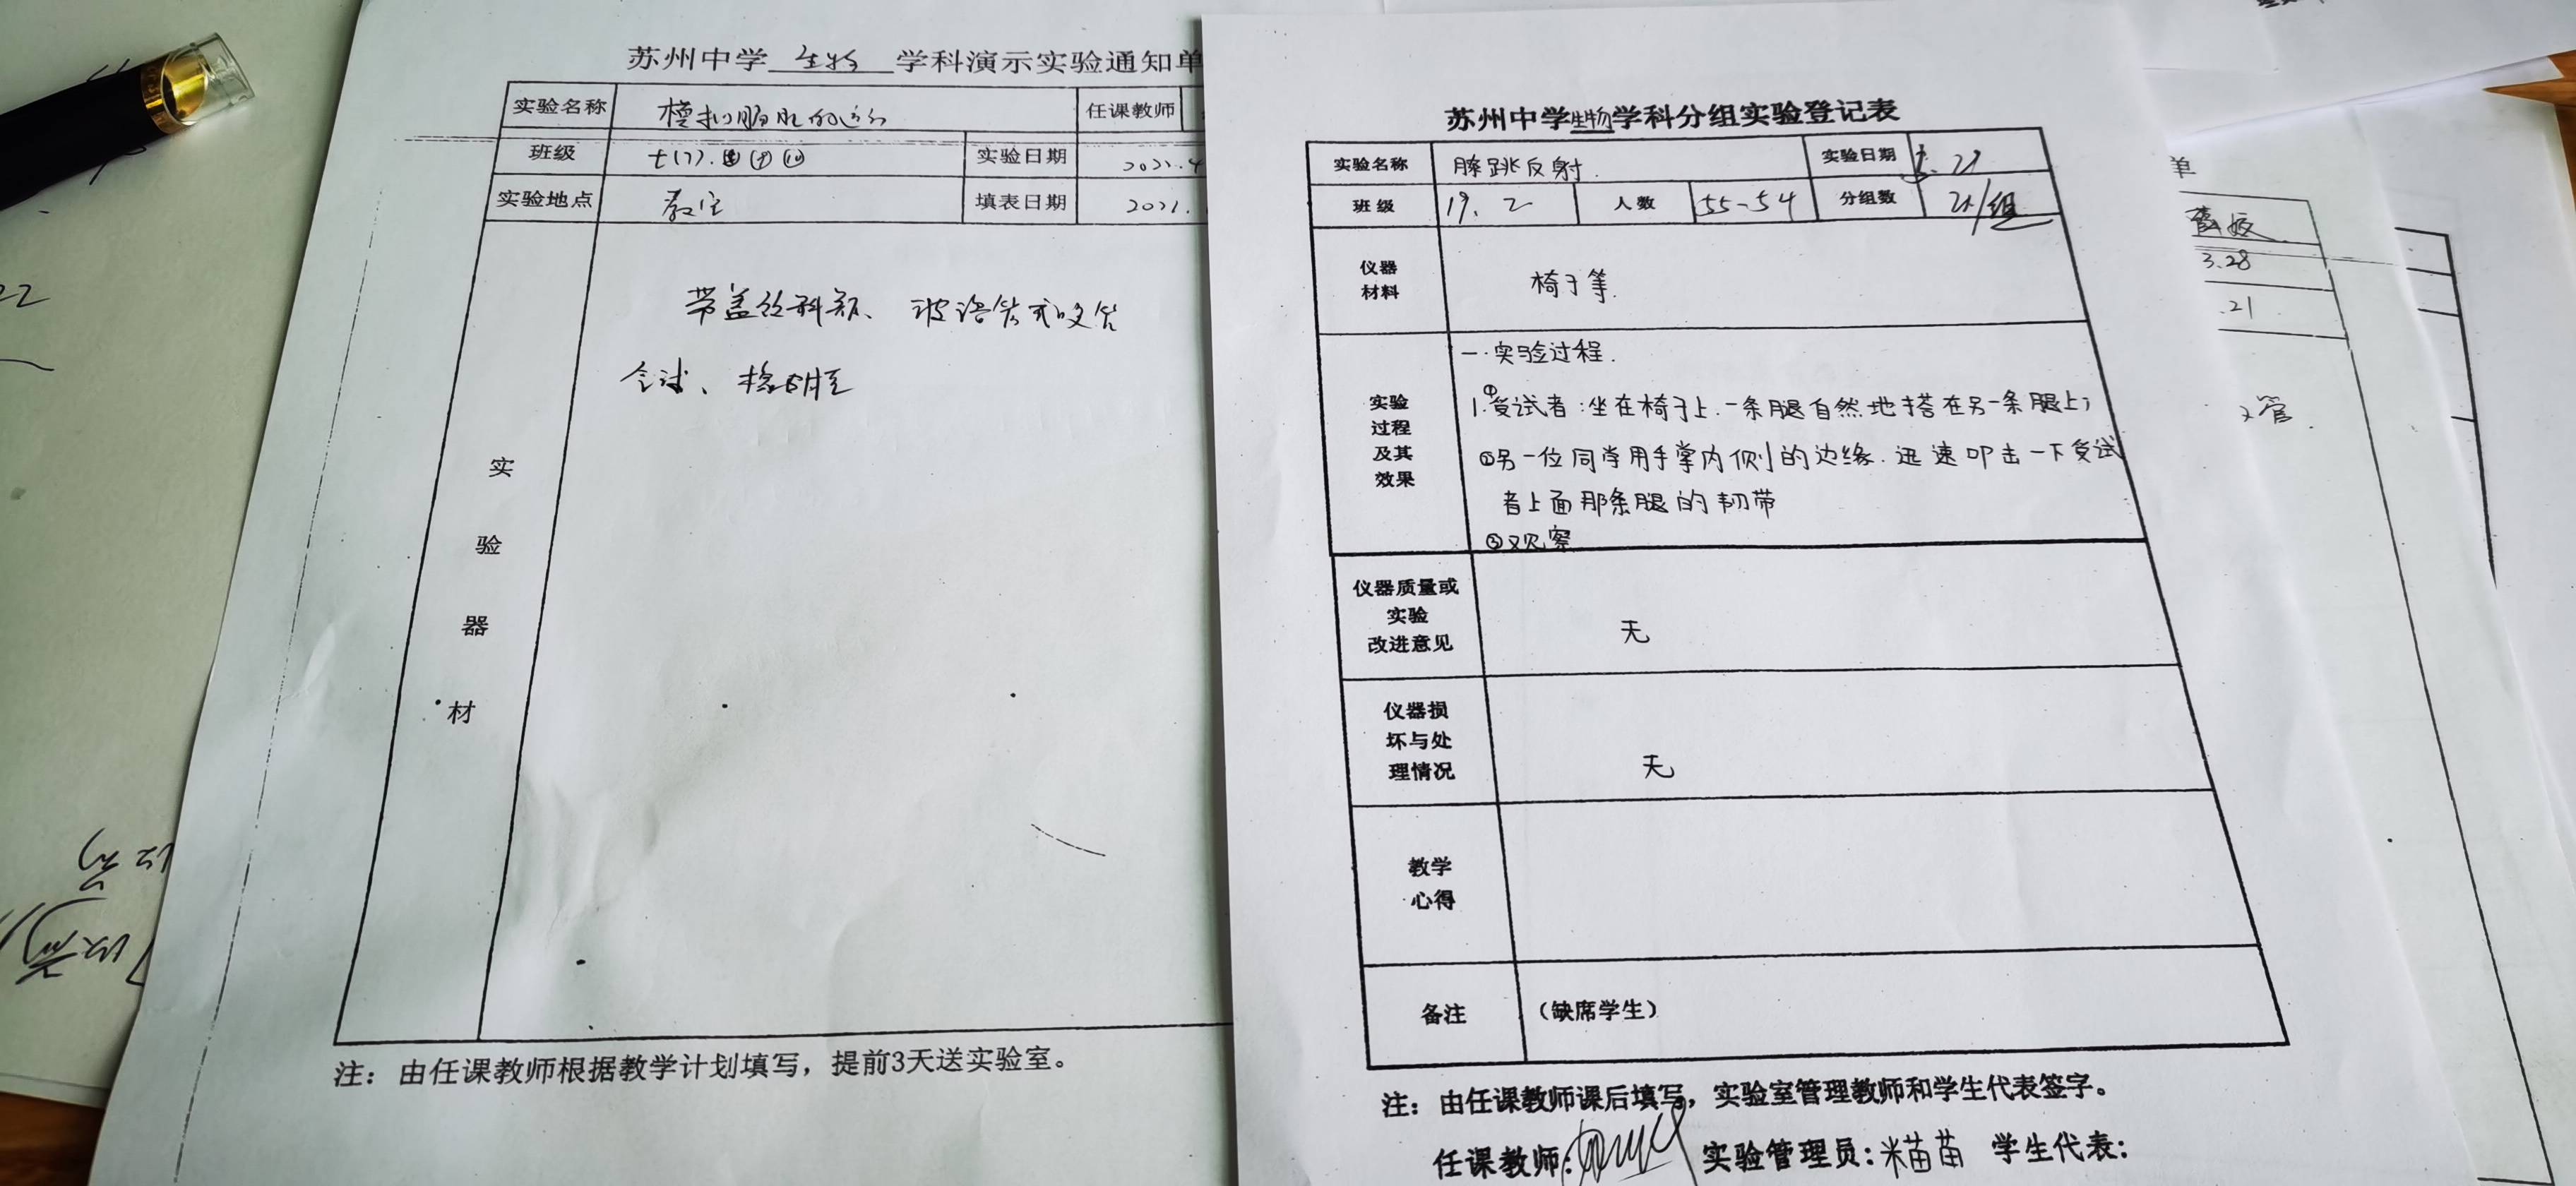 苏州中学 生物 学科演示实验通知单
实验名称 模拟膈肌的运动 任课教师
班级 七(7). (9) (10) 实验日期 2021.4
实验地点 教室 填表日期 2021.
实验器材
带盖饮料瓶、玻璃管或吸管
气球、橡皮膜
注：由任课教师根据教学计划填写，提前3天送实验室。
苏州中学生物学科分组实验登记表
实验名称 膝跳反射. 实验日期
班级 19. 2 人数 55-54 分组数 2人/组
仪器材料 椅子等.
实验过程及其效果
一.实验过程.
1.①受试者:坐在椅子上.一条腿自然地搭在另一条腿上;
②另一位同学用手掌内侧的边缘.迅速叩击一下受试
者上面那条腿的韧带
③观察
仪器质量或实验改进意见 无
仪器损坏与处理情况 无
教学心得
备注 （缺席学生）
注：由任课教师课后填写，实验室管理教师和学生代表签字。
任课教师: 实验管理员: 苗 学生代表:
单
3.28
.21
管.
22